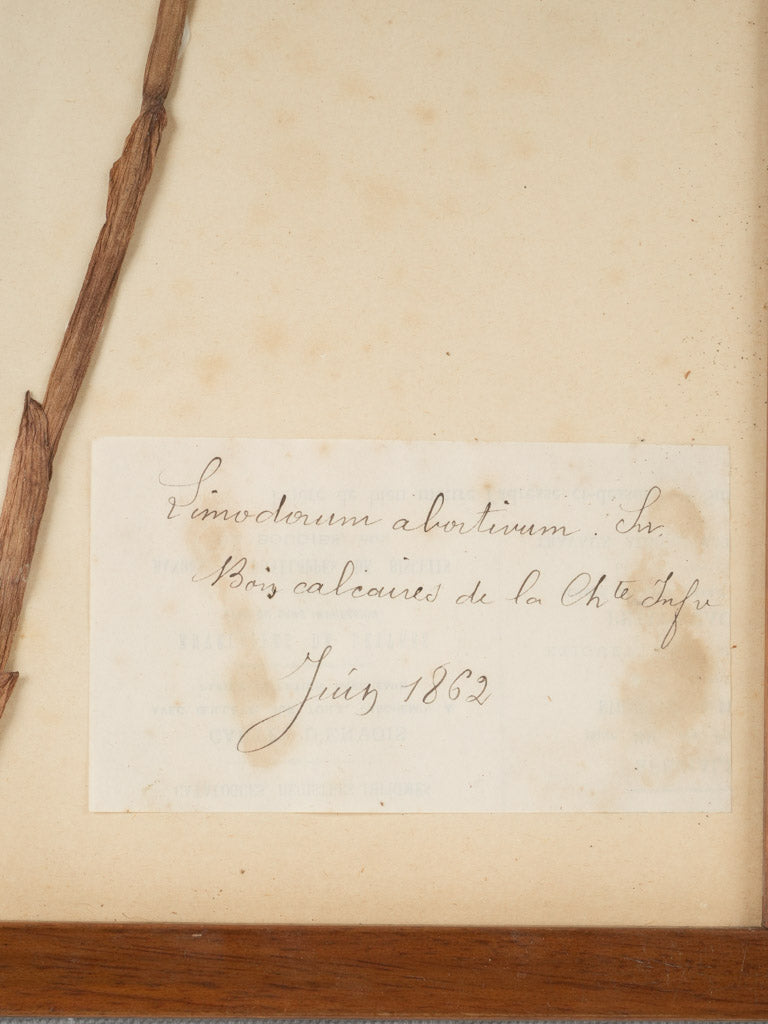 Limodorum abortivum. Sw.
Bois calcaires de la Chte Infre
Juin 1862